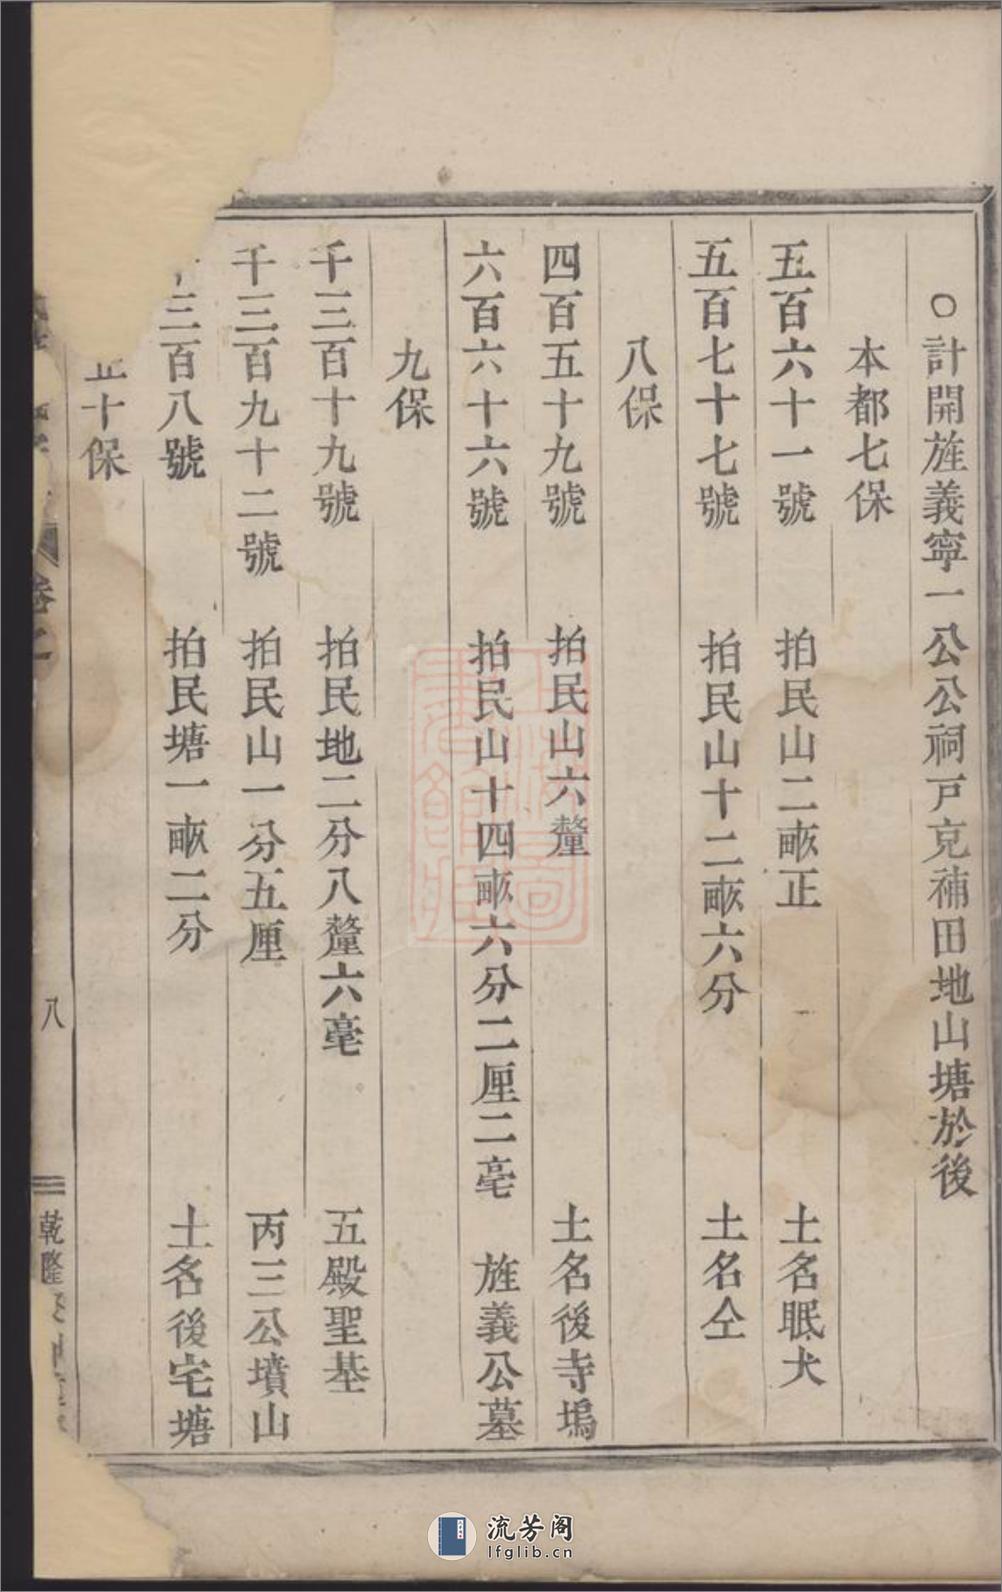 ○計開旌義寧一公公祠戸克補田地山塘於後
本都七保
五百六十一號 拍民山二畝正 土名眠犬
五百七十七號 拍民山十二畝六分 土名仝
八保
四百五十九號 拍民山六釐 土名後寺塢
六百六十六號 拍民山十四畝六分二厘二毫 旌義公墓
九保
千三百十九號 拍民地二分八釐六毫 五殿聖基
千三百九十二號 拍民山一分五厘 丙三公墳山
三百八號 拍民塘一畝二分 土名後宅塘
十保
卷之
八
乾隆
流芳阁
lfglib.cn